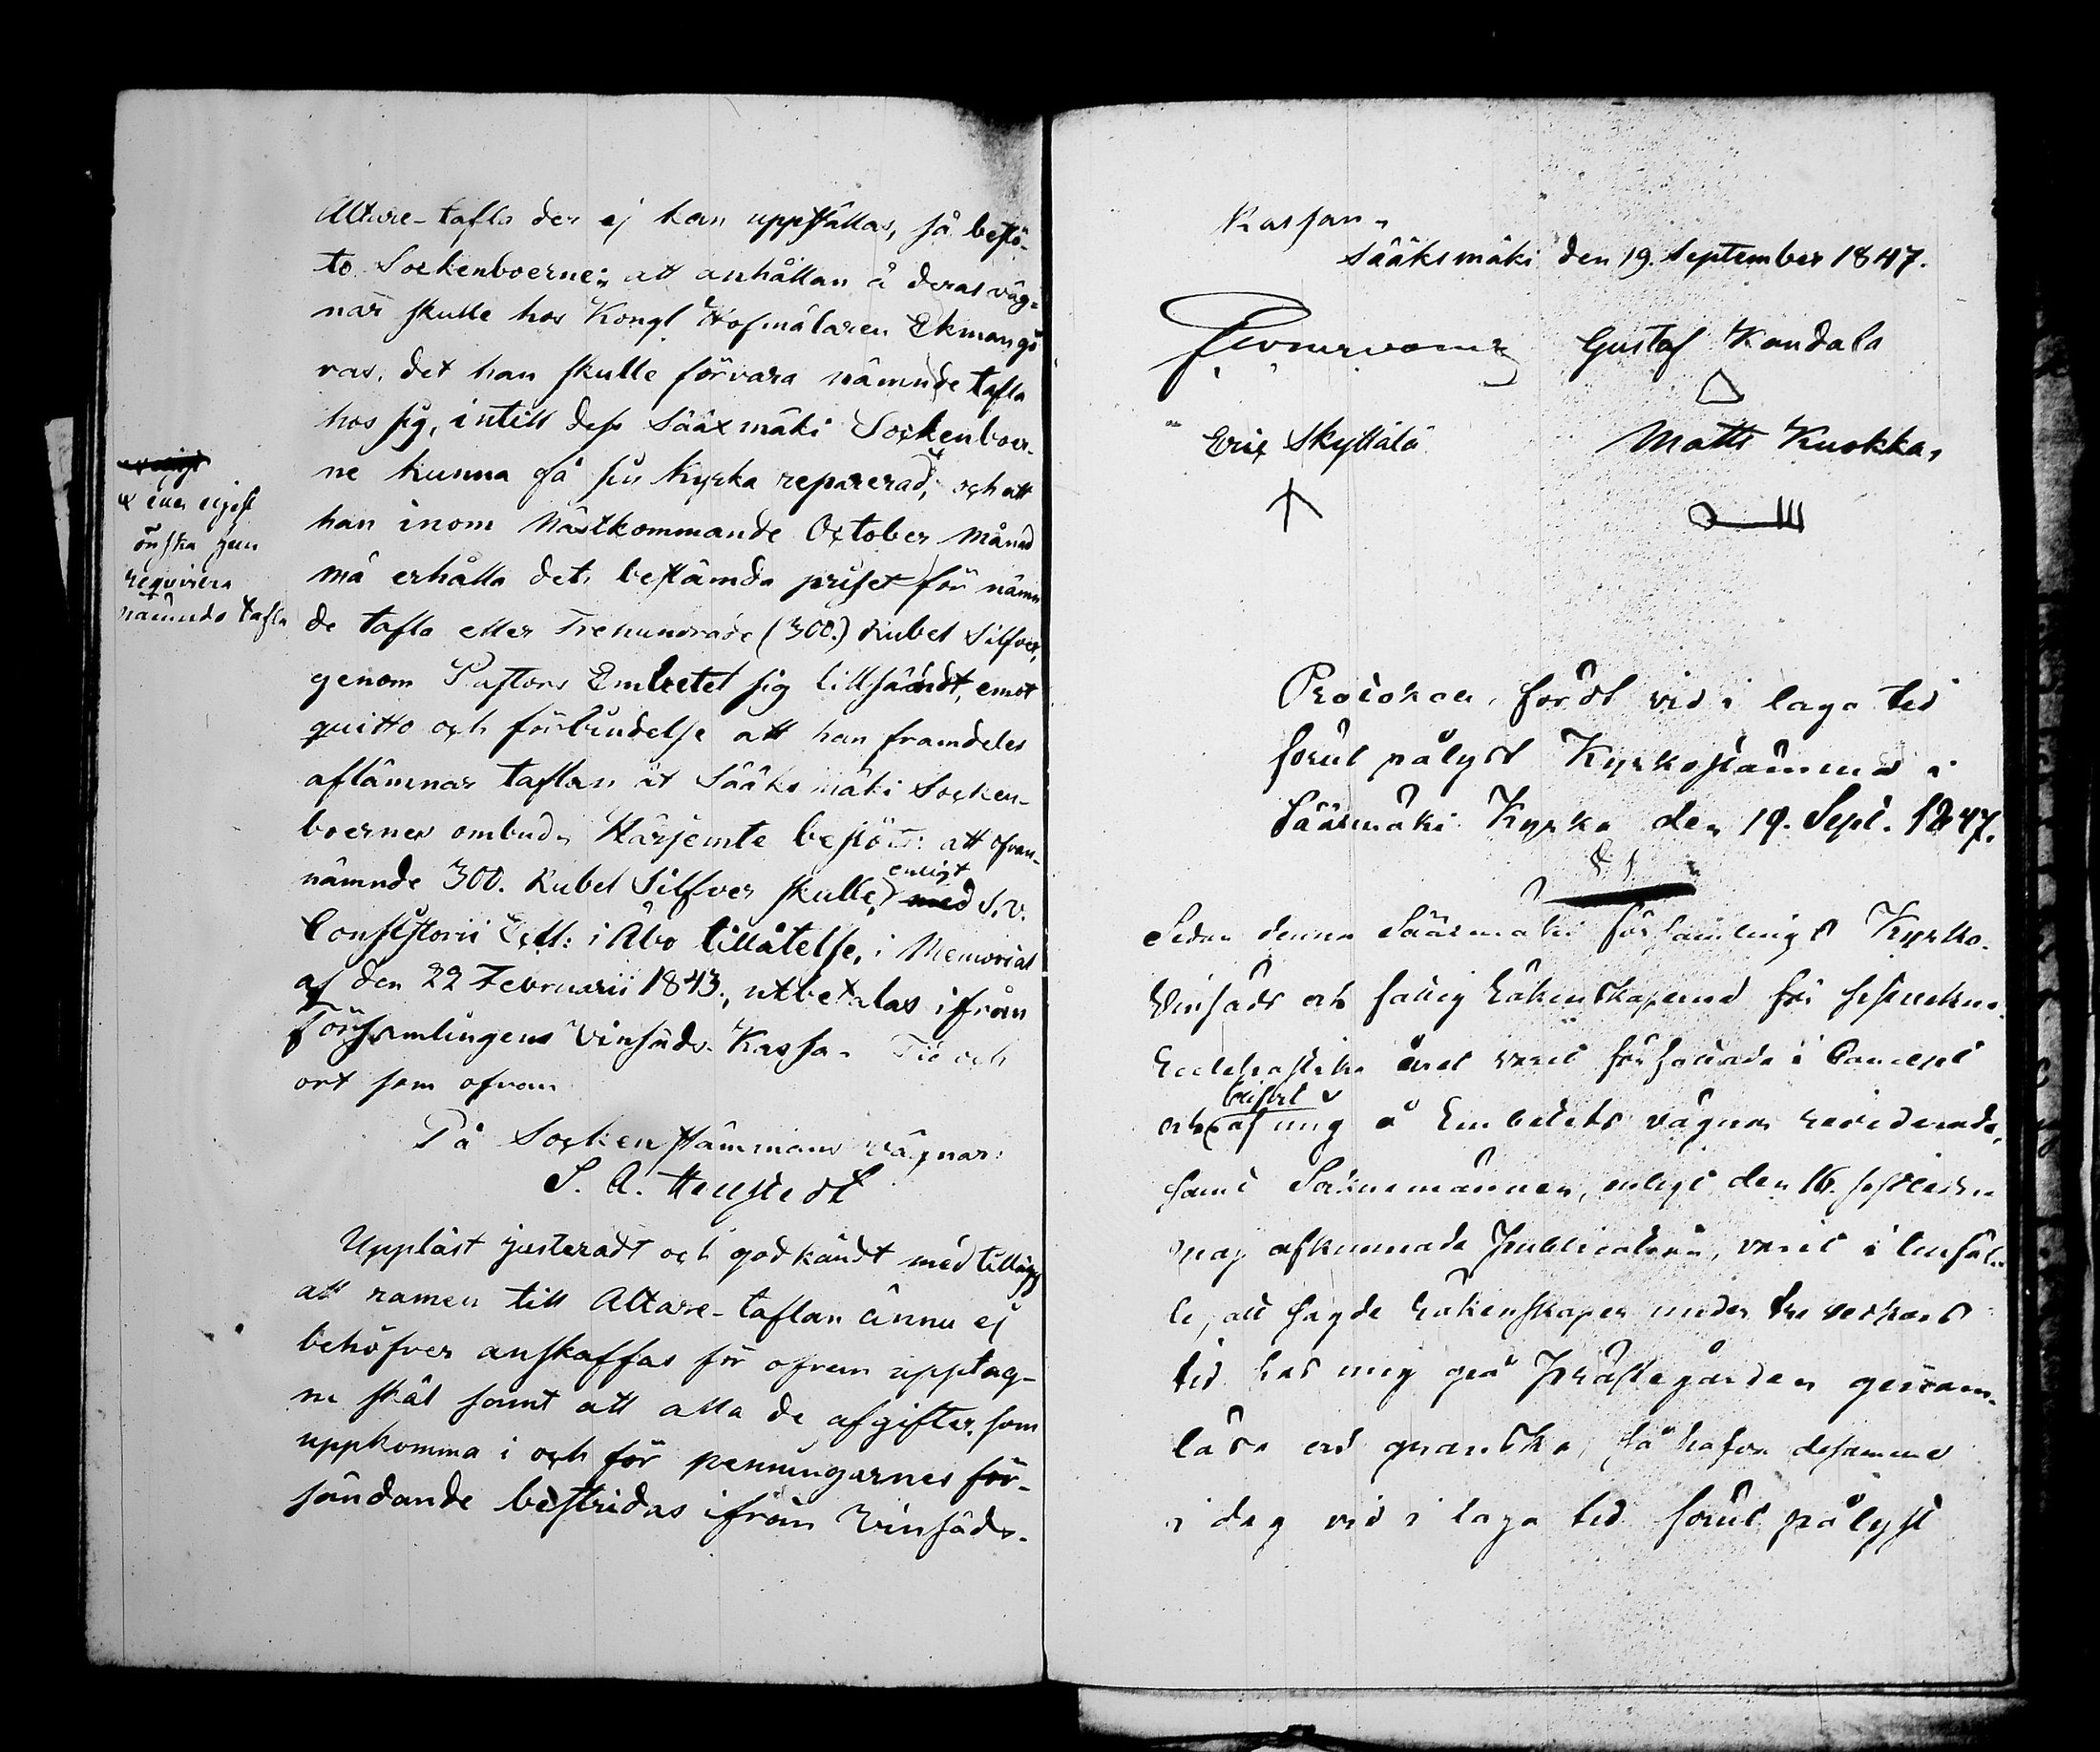 Altare-tafla der ej kan uppställas, så beslö-
to Sockenboerne: att anhållan å deras väg-
nar skulle hos Kongl Hofmålaren Ekman gö
ras, det han skulle förvara nämnde tafla
hos sig, intill dess Sääxmäki Sockenboer-
ne kunna få sin Kyrka reparerad, och att
han inom Nästkommande October Månad
må erhålla det bestämda priset för nämn
de tafla eller Trehundrade (300.) Rubel Silfver,
genom Pastors Embetet sig tillsändt, emot
quitto och förbindelse att han framdeles
aflämnar taflan åt Sääksmäki Socken-
boernes ombud. Härjemte beslöts: att ofvan-
nämnde 300. Rubel Silfver skulle, enligt med S. V.
Consistorii Eccl: i Åbo tillåtelse, i Memorial
af den 22 Februarii 1843, utbetalas ifrån
Församlingens Vinsäds-Kassa. Tid och
ort som ofvan
På Sockenstämmans vägnar:
S. A. Hellstedt
Uppläst justeradt och godkändt med tillägg
att ramen till Altare-taflan ännu ej
behöfver anskaffas för ofvan upptag-
ne skäl samt att alla de afgifter, som
uppkomma i och för penningarnes för-
sändande bestridas ifrån Vinsäds-
önska
reqvirera
nämnde tafla
Kassan.
Sääksmäki den 19. September 1847.
Gustaf Kandala
Eric Skyttälä
Matts Kuokka,
Protokoll, fördt vid i laga tid
förut pålyst Kyrkostämma i
Sääxmäki Kyrka den 19. Sept. 1847.
§ 1
Sedan denne Sääxmäki församlings Kyrko-
Vinsäds och fattig Räkenskaperne för sistvekne
Ecclesiastike året varit författade i Concept
och af mig å Embetets vägnar reviderade,
samt Socknemännen, enligt den 16. sistledne
Maj afkunnade publication, varit i tillfäl-
le, att sagde Räkenskaper under tre veckors
tid hos mig på Prästegården genom-
läsa och granska, så hafva desamma
i dag vid i laga tid förut pålyst